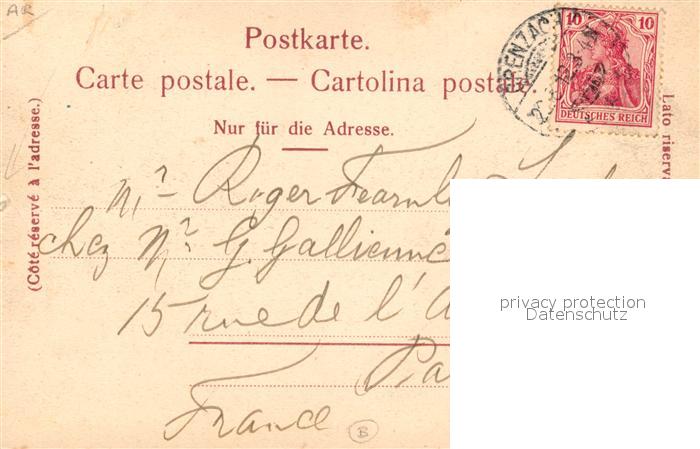 AR
Postkarte.
Carte postale. — Cartolina postale.
Nur für die Adresse.
(Côté réservé à l'adresse.)
Lato riserva
10 10
DEUTSCHES REICH
RENZACH
Mr Roger
chez Mr G. Gallienne
15 rue de l'A
Pa
France
B
privacy protection
Datenschutz